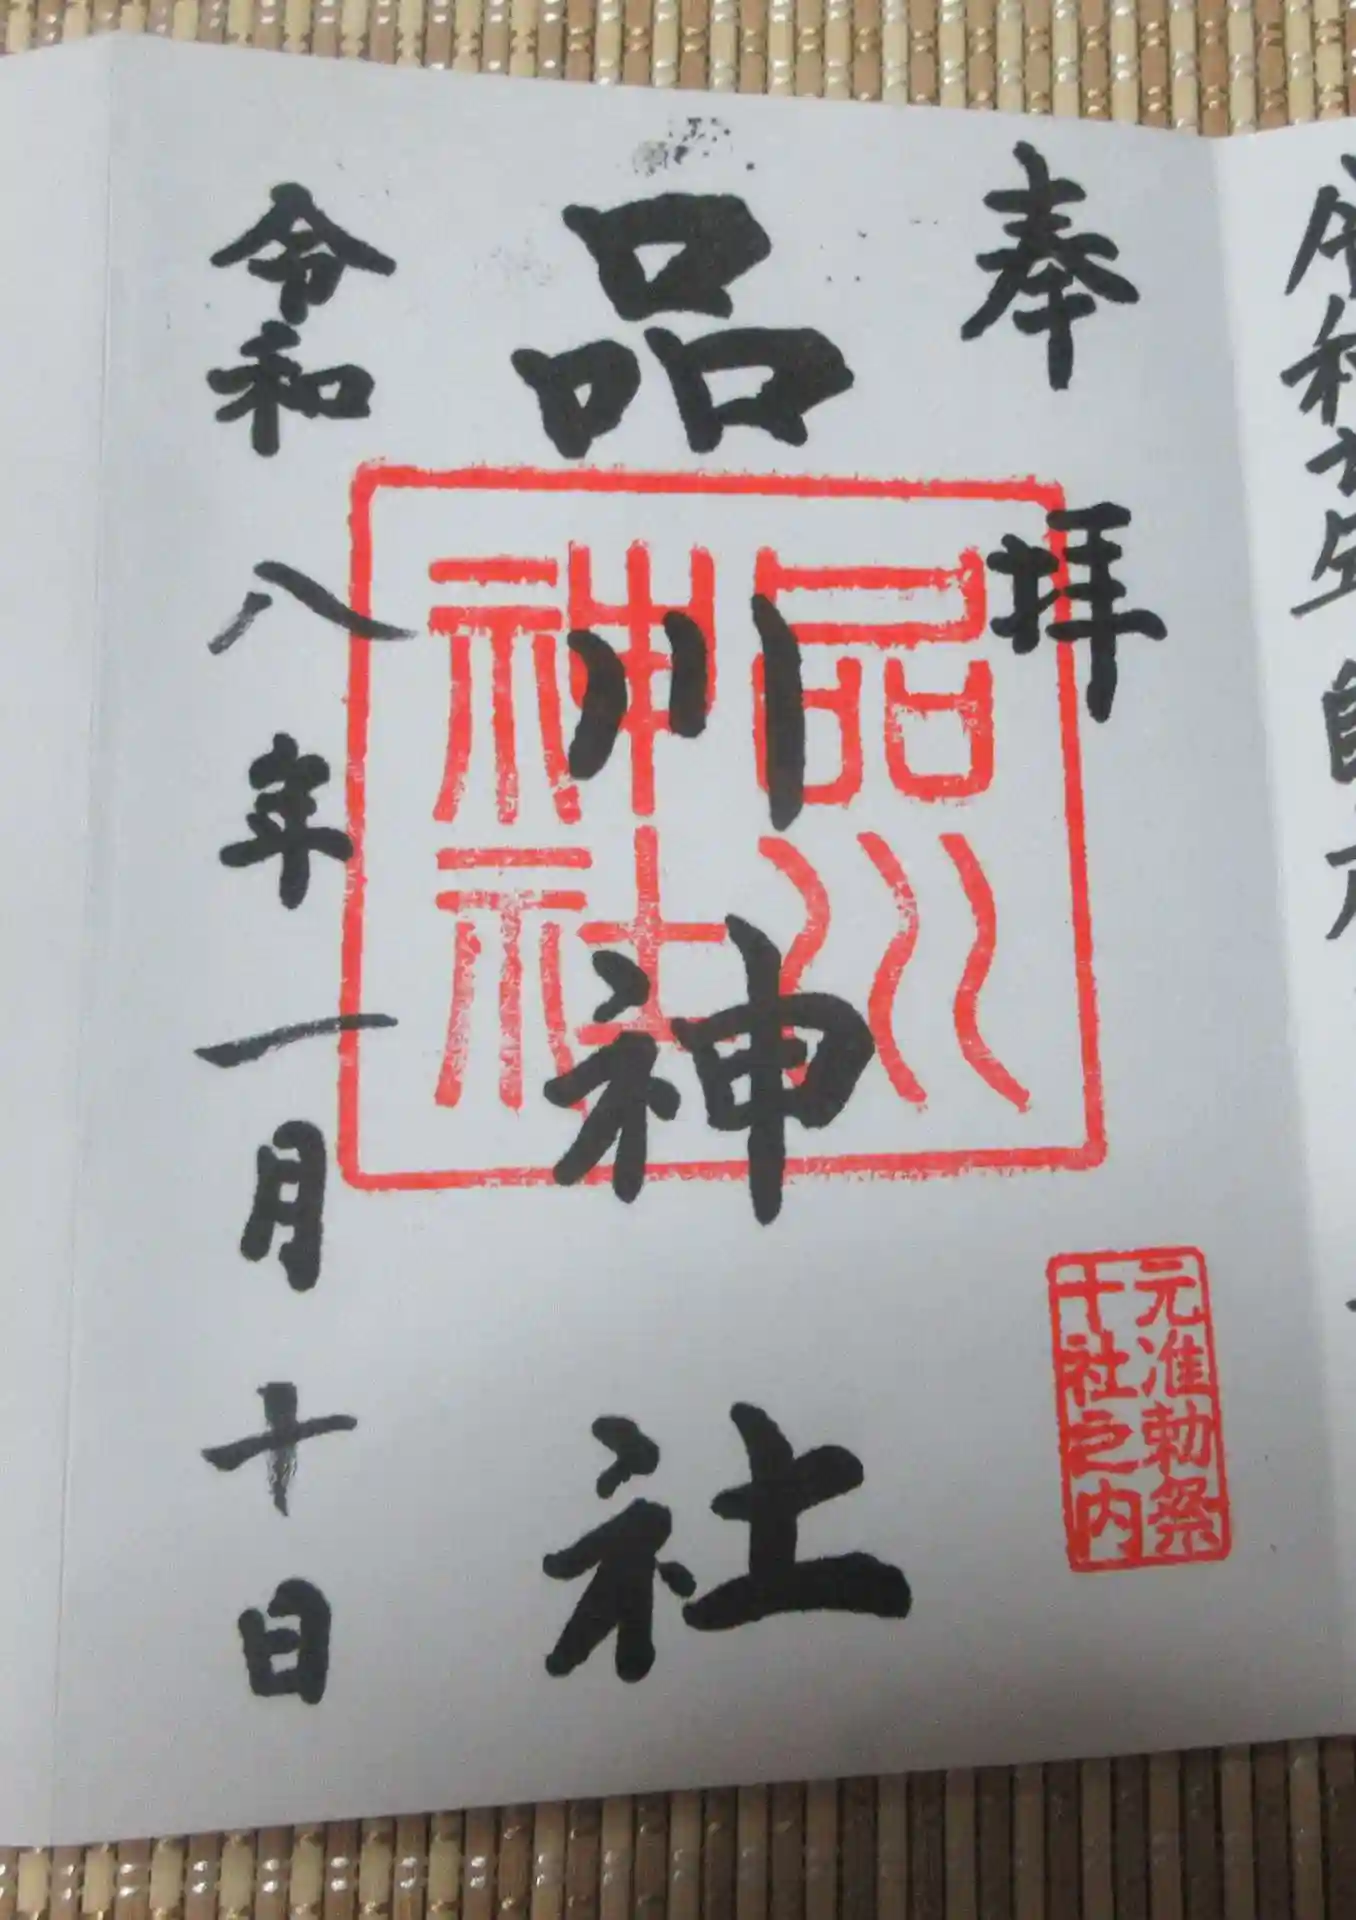 奉拝
品川神社
品川
神社
令和八年一月十日
元准勅祭
十社之内